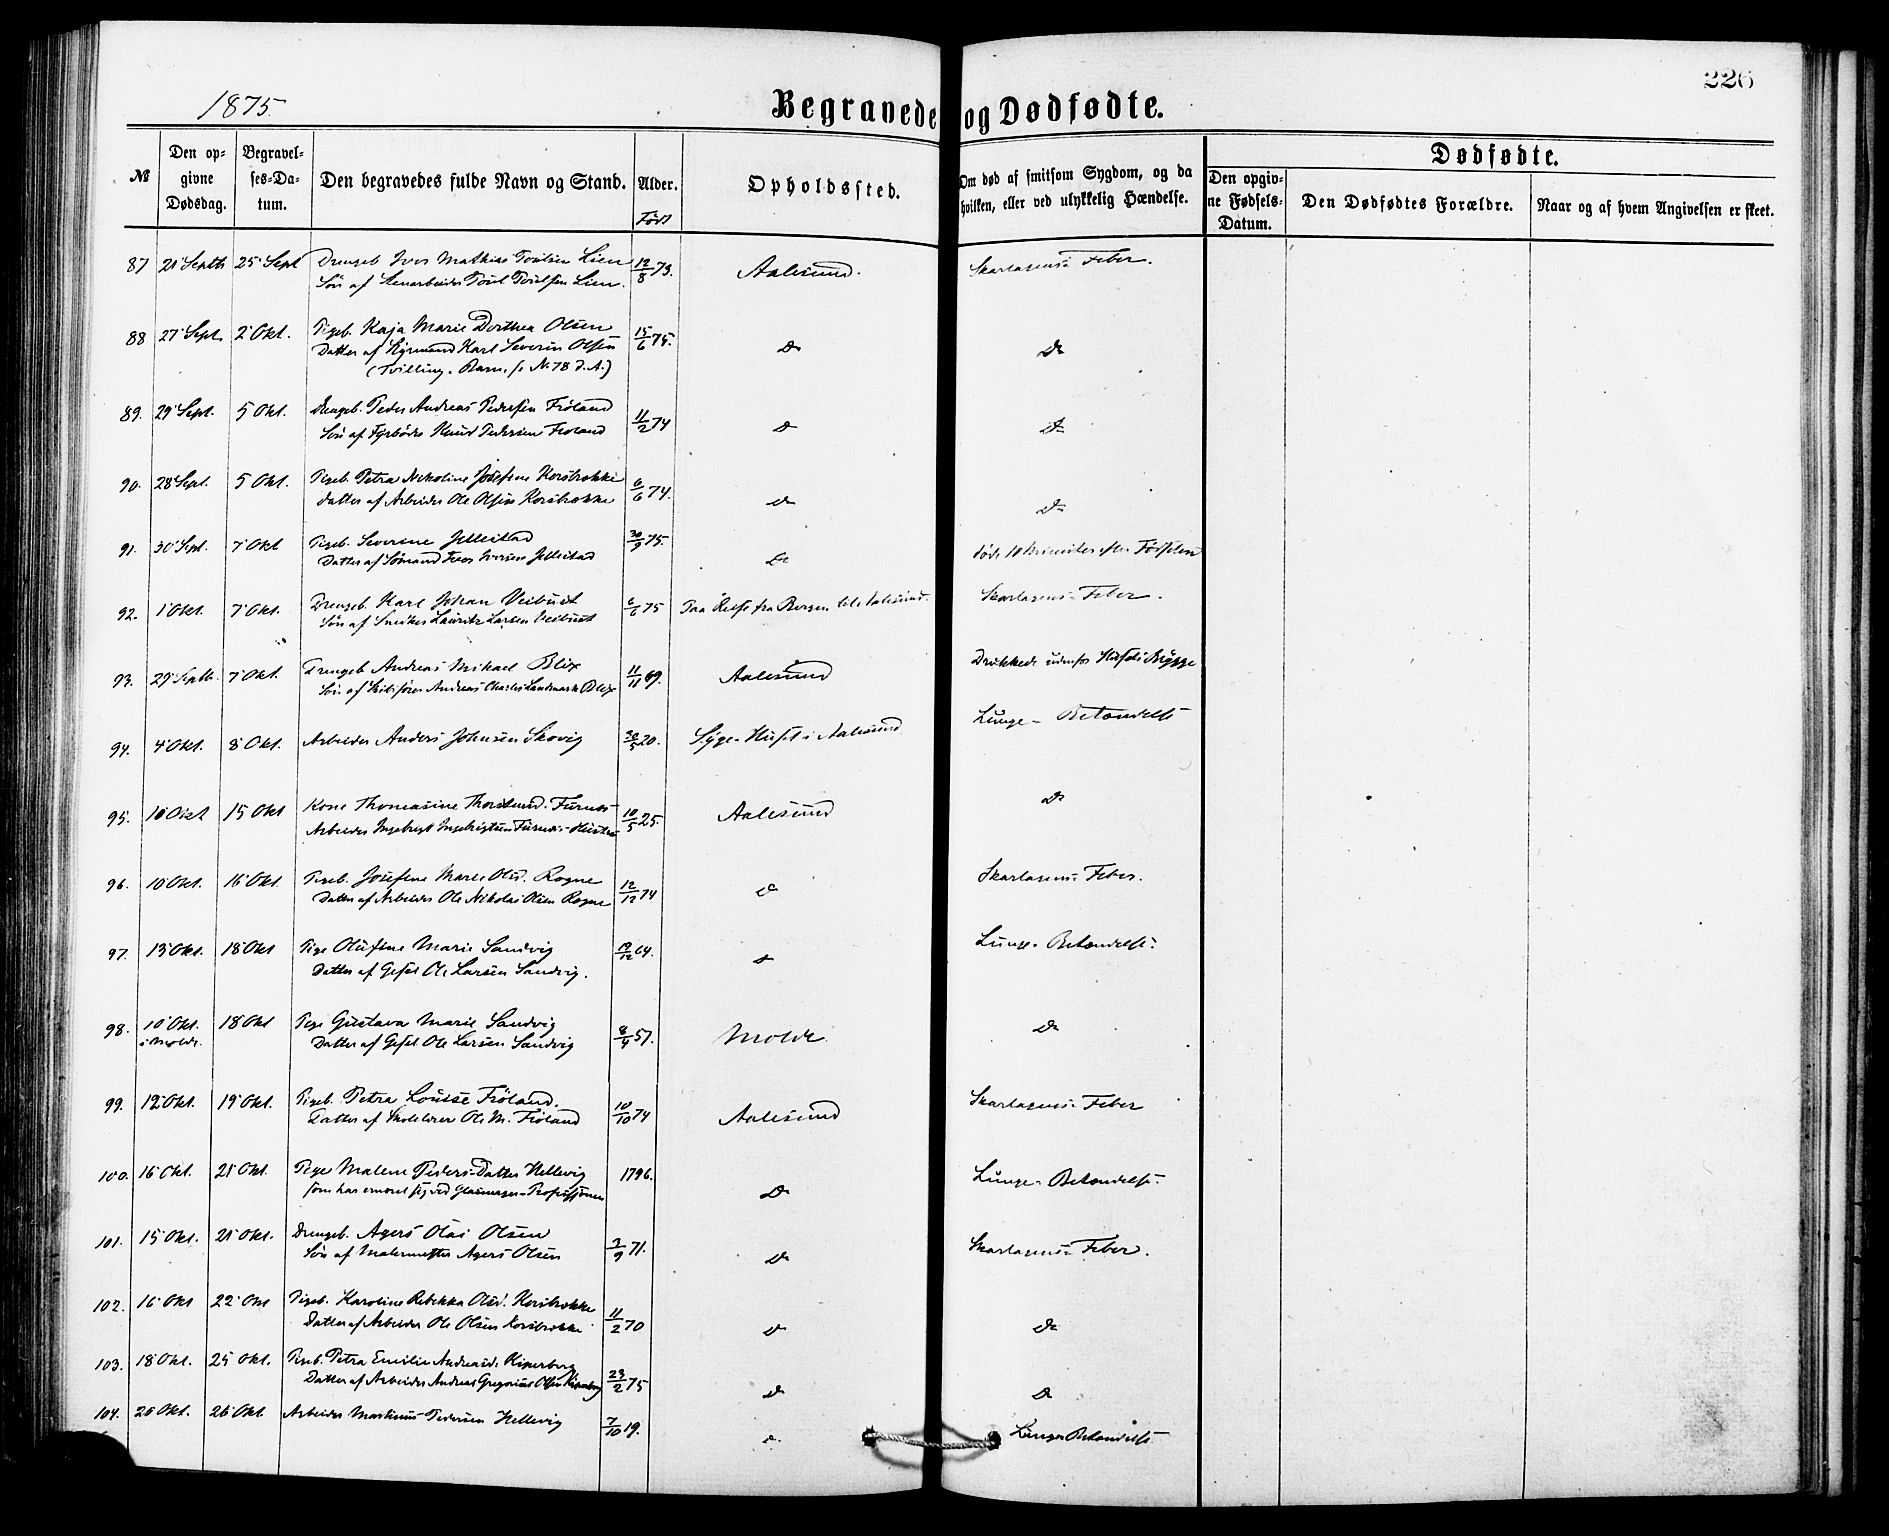 226
1875.
Begravede og Dødfødte.
№
Den opgivne Dødsdag.
Begravelses-Datum.
Den begravedes fulde Navn og Stand.
Alder.
Født
Opholdssted.
Om død af smitsom Sygdom, og da hvilken, eller ved ulykkelig Hændelse.
Dødfødte.
Den opgivne Fødsels-Datum.
Den Dødfødtes Forældre.
Naar og af hvem Angivelsen er skeet.
87 21 Septb 25 Sept Drengeb. Iver Mathias Lien 12/8 73. Aalesund. Skarlagens-Feber.
Søn af Stenarbeider Lien.
88 27 Sept. 2 Okt. Pigeb. Kaja Marie Dorthea Olsen 15/6 75. Do Do
Datter af Styrmand Karl Severin Olsen
(Tvilling-Barn, s. N. 78 d. A.)
89. 29 Sept. 5 Okt. Drengeb. Peder Andreas Pedersen Frøland 11/2 74 Do Do
Søn af Fyrbøder Knud Pedersen Frøland
90. 28 Sept. 5 Okt. Pigeb. Petra Nikoline Josefine Korsbrække 6/6 74. Do Do
Datter af Arbeider Ole Olsen Korsbrække
91. 30 Sept. 7 Okt Pigeb. Severine Jellestad 30/9 75. Do døde 10 Minuter efter Fødselen
Datter af Sømand Iver Iversen Jellestad
92. 1 Okt. 7 Okt. Drengeb. Karl Johan Veibust 6/6 75 Paa Reise fra Bergen til Aalesund. Skarlagens-Feber.
Søn af Snedker Lauritz Larsen Veibust
93. 29 Septb. 7 Okt. Drengeb Andreas Mikael Blix 11/11 69. Aalesund Druknede udenfor Brygge
Søn af Skibsfører Andreas Charles Landmark Blix
94. 4 Okt. 8 Okt. Arbeider Anders Johnsen Skovig 30/5 20. Syge-Huset i Aalesund Lunge-Betændelse
95. 10 Okt 15 Okt Kone Thomasine Thorstensd. Furnes 10/5 25. Aalesund Do
Arbeider Ingebrigt Ingebrigtsen Furnes's Hustru
96. 10 Okt. 16 Okt. Pigeb. Josefine Marie Olsd. Rogne 12/12 74 Do Skarlagens-Feber.
Datter af Arbeider Ole Nikolai Olsen Rogne
97. 13 Okt. 18 Okt Pige Olufine Marie Sandvig 19/12 64. Do Lunge-Betændelse.
Datter af Gesel Ole Larsen Sandvig.
98. 10 Okt. 18 Okt Pige Gustava Marie Sandvig 8/4 57. Molde. Do
i Molde. Datter af Gesel Ole Larsen Sandvig
99. 12 Okt. 19 Okt. Pigeb. Petra Louise Frøland. 10/10 74 Aalesund Skarlagens-Feber
Datter af Skolelærer Ole M. Frøland
100. 16 Okt. 21 Okt. Pige Malene Peders-Datter Hellevig 1796. Do Lunge-Betændelse.
som har ernæret sig ved Glasmager-Professionen
101. 15 Okt. 21 Okt. Drengeb. Agers Olai Olsen 3/9 71. Do Skarlagens-Feber.
Søn af Malermester Agers Olsen
102. 16 Okt 22 Okt Pigeb. Karoline Rebekka Olsd. Korsbrække 11/2 70 Do Do
Datter af Arbeider Ole Olsen Korsbrække
103. 18 Okt. 25 Okt. Pigeb. Petra Emilie Andreasd. Kiperberg 23/2 75 Do Do
Datter af Arbeider Andreas Gregorius Olsen Kiperberg
104. 20 Okt. 26 Okt. Arbeider Martinus Pedersen Hellevig 7/10 19. Do Lunge Betændelse